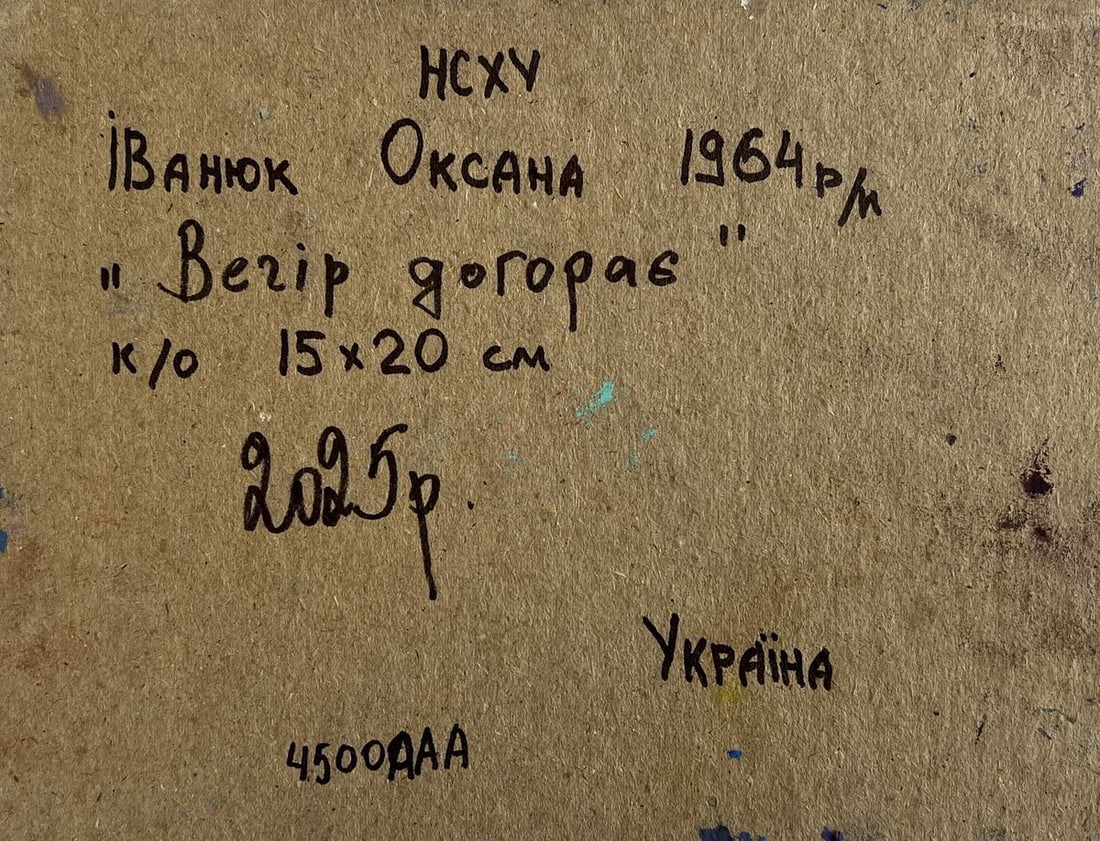 НСХУ
Іванюк Оксана 1964 р/н
"Вечір догорає"
к/о 15х20 см
2025р.
Україна
4500ААА